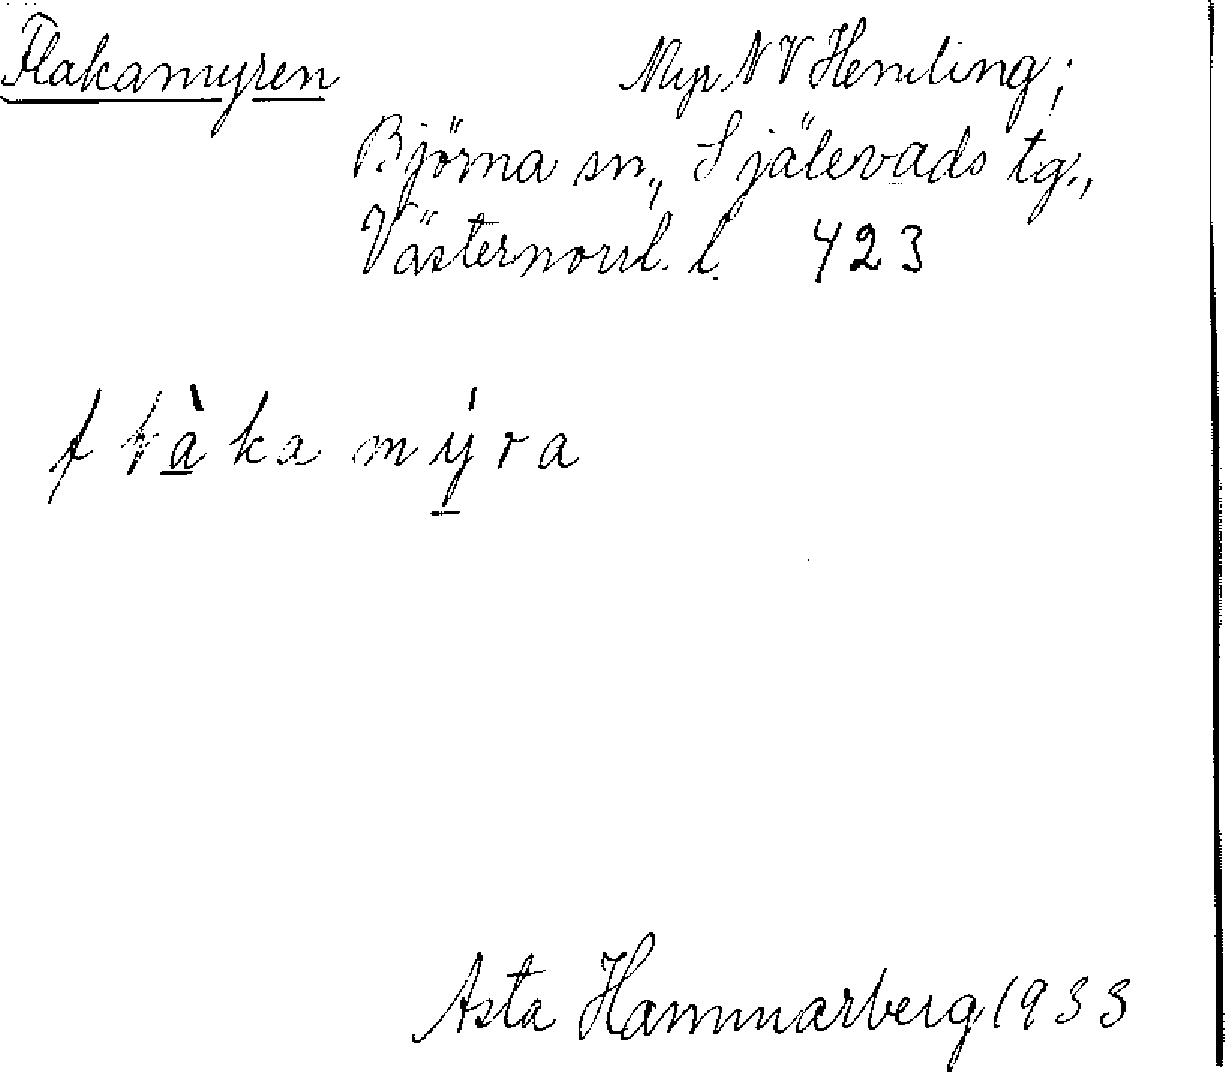 Flakamyren
Myr NV Hemling;
Björna sn., Själevads tg.,
Västernorrl. l. 423
myra
Asta Hammarberg 1933